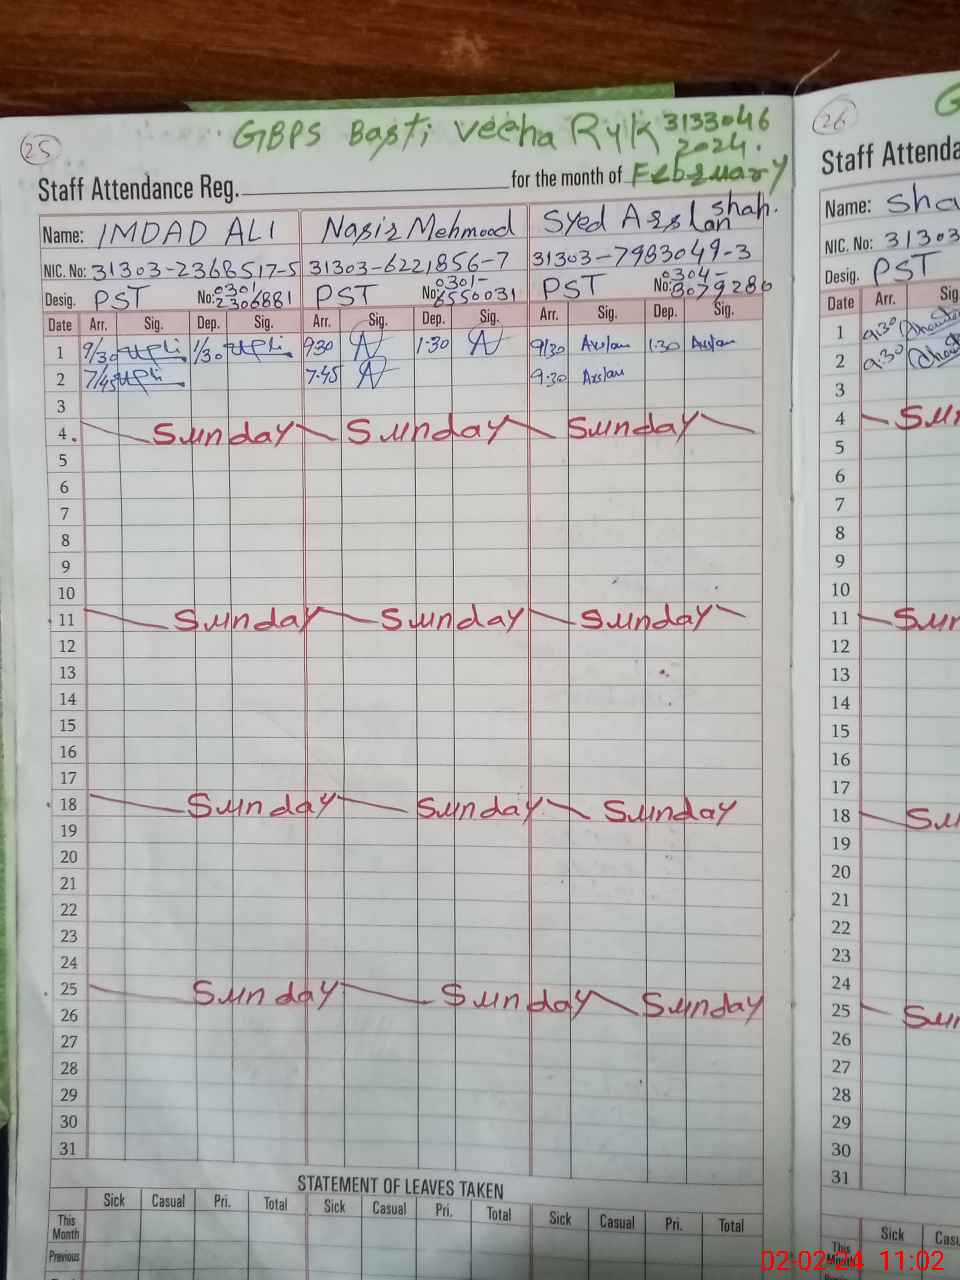 25
GBPS Basti Veeha Ryk 3133046
2024.
Staff Attendance Reg. for the month of February
Name: IMDAD ALI Nasir Mehmood Syed Arslan shah.
NIC. No: 31303-2368517-5 31303-6221856-7 31303-7983049-3
Desig. PST No: 0301/2306881 PST No: 0301-6550031 PST No: 0304-8079286
Date Arr. Sig. Dep. Sig. Arr. Sig. Dep. Sig. Arr. Sig. Dep. Sig.
1 9/30 1/30 930 1:30 9/30 Arslan 1:30 Arslan
2 7/45 7.45 9:30 Arslan
3
4. Sunday Sunday Sunday
5
6
7
8
9
10
11 Sunday Sunday Sunday
12
13
14
15
16
17
18 Sunday Sunday Sunday
19
20
21
22
23
24
25 Sunday Sunday Sunday
26
27
28
29
30
31
STATEMENT OF LEAVES TAKEN
Sick Casual Pri. Total Sick Casual Pri. Total Sick Casual Pri. Total
This Month
Previous
26
G
Staff Attenda
Name: Sha
NIC. No: 31303
Desig. PST
Date Arr. Sig
1 930
2 930
3
4 Sun
5
6
7
8
9
10
11 Sun
12
13
14
15
16
17
18 Su
19
20
21
22
23
24
25 Sun
26
27
28
29
30
31
Sick Casu
This Month
02-02-24 11:02